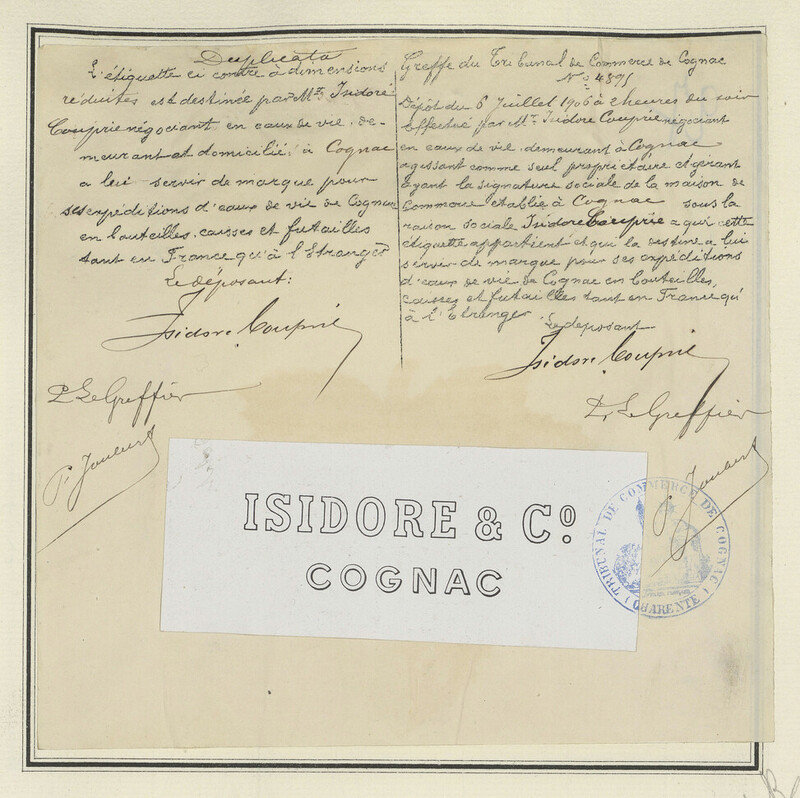 Duplicata
L'étiquette ci contre à dimensions
réduites est destinée par Mr. Isidore
Couprie négociant en eaux de vie, de-
meurant et domicilié, à Cognac
a lui servir de marque pour
ses expéditions d'eaux de vie de Cognac
en bouteilles, caisses et futailles
tant en France qu'à l'Etranger
Le déposant:
Isidore Couprie
Pr Le Greffier
Greffe du Tribunal de Commerce de Cognac
No 4891
Dépôt du 6 Juillet 1906 à 2 heures du soir
Effectué par Mr. Isidore Couprie négociant
en eaux de vie, demeurant à Cognac
agissant comme seul propriétaire et gérant
ayant la signature sociale de la maison de
Commerce établie à Cognac sous la
raison sociale Isidore Couprie a qui cette
étiquette appartient et qui la destine a lui
servir de marque pour ses expéditions
d'eaux de vie de Cognac en bouteilles,
caisses et futailles tant en France qu'
à l'Etranger.
Le déposant
Isidore Couprie
Pr Le Greffier
ISIDORE & Co.
COGNAC
TRIBUNAL DE COMMERCE DE COGNAC
(CHARENTE)